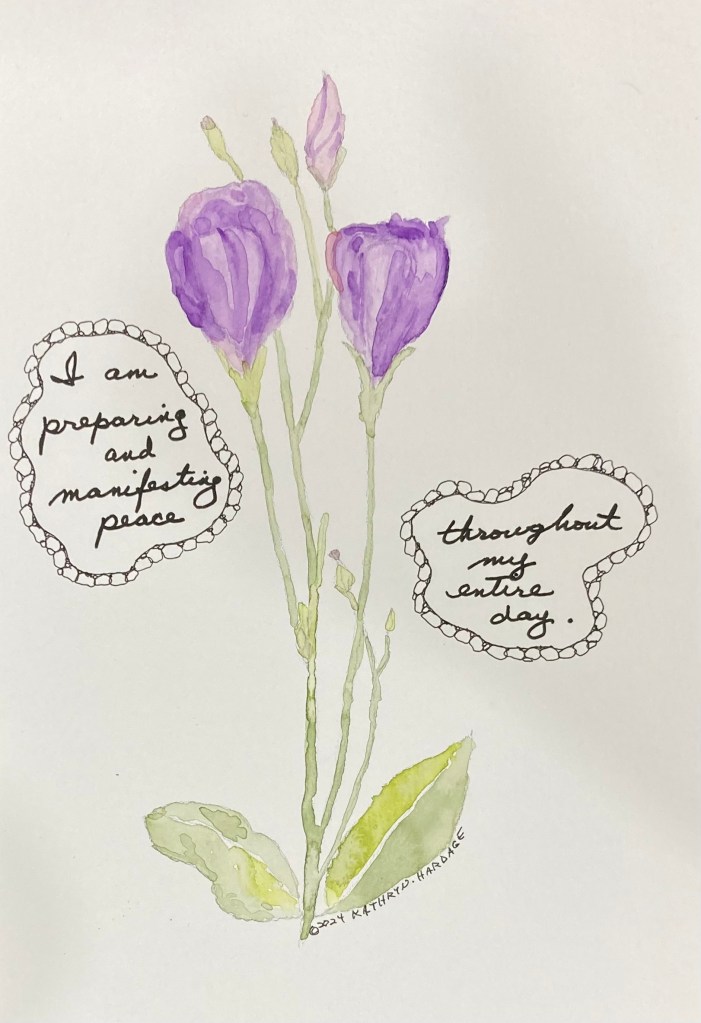 I am
preparing
and
manifesting
peace
throughout
my
entire
day.
©2024 KATHRYN. HARDAGE